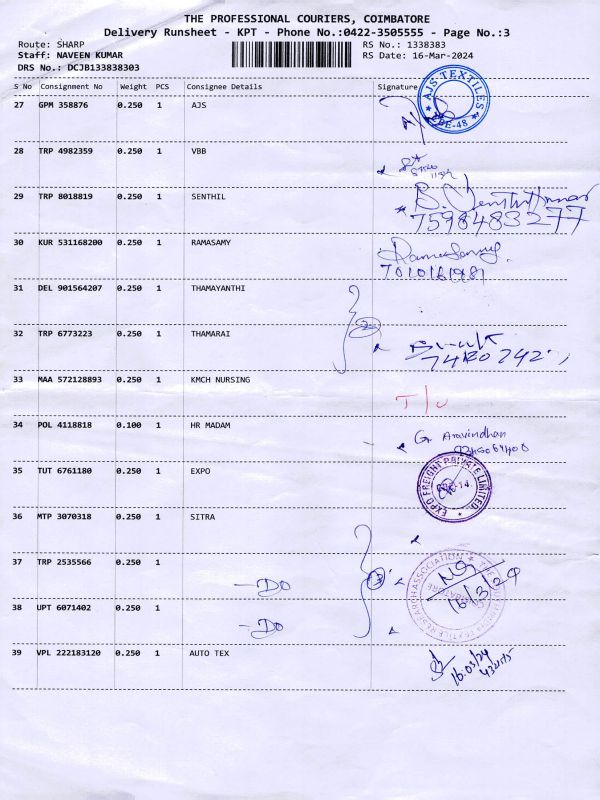 THE PROFESSIONAL COURIERS, COIMBATORE
Delivery Runsheet - KPT - Phone No.:0422-3505555 - Page No.:3
Route: SHARP
RS No.: 1338383
Staff: NAVEEN KUMAR
RS Date: 16-Mar-2024
DRS No.: DCJB133838303
S No Consignment No Weight PCS Consignee Details Signature
AJS TEXTILES
CBE-48
27 GPM 358876 0.250 1 AJS
28 TRP 4982359 0.250 1 VBB
29 TRP 8018819 0.250 1 SENTHIL B. Senthilkumar
7598483277
30 KUR 531168200 0.250 1 RAMASAMY Ramasamy
7010161981
31 DEL 901564207 0.250 1 THAMAYANTHI
2
32 TRP 6773223 0.250 1 THAMARAI
33 MAA 572128893 0.250 1 KMCH NURSING T/U
34 POL 4118818 0.100 1 HR MADAM G. Aravindhan
35 TUT 6761180 0.250 1 EXPO
EXPO FREIGHT PRIVATE LIMITED
36 MTP 3070318 0.250 1 SITRA
37 TRP 2535566 0.250 1 -DO
16/3/24
38 UPT 6071402 0.250 1 -DO
39 VPL 222183120 0.250 1 AUTO TEX
16.03/24